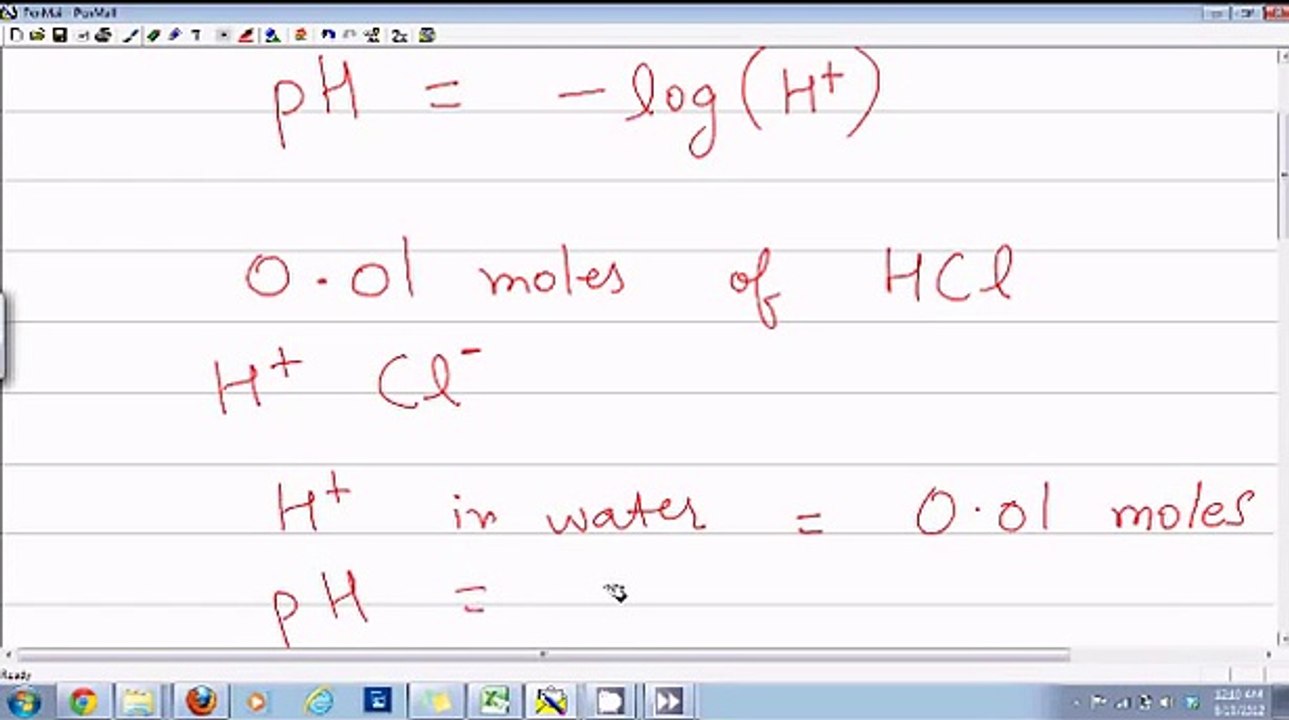 PenMail - PenMail
T 2x
pH = - log (H+)
0.01 moles of HCl
H+ Cl-
H+ in water = 0.01 moles
pH =
Ready
12:10 AM